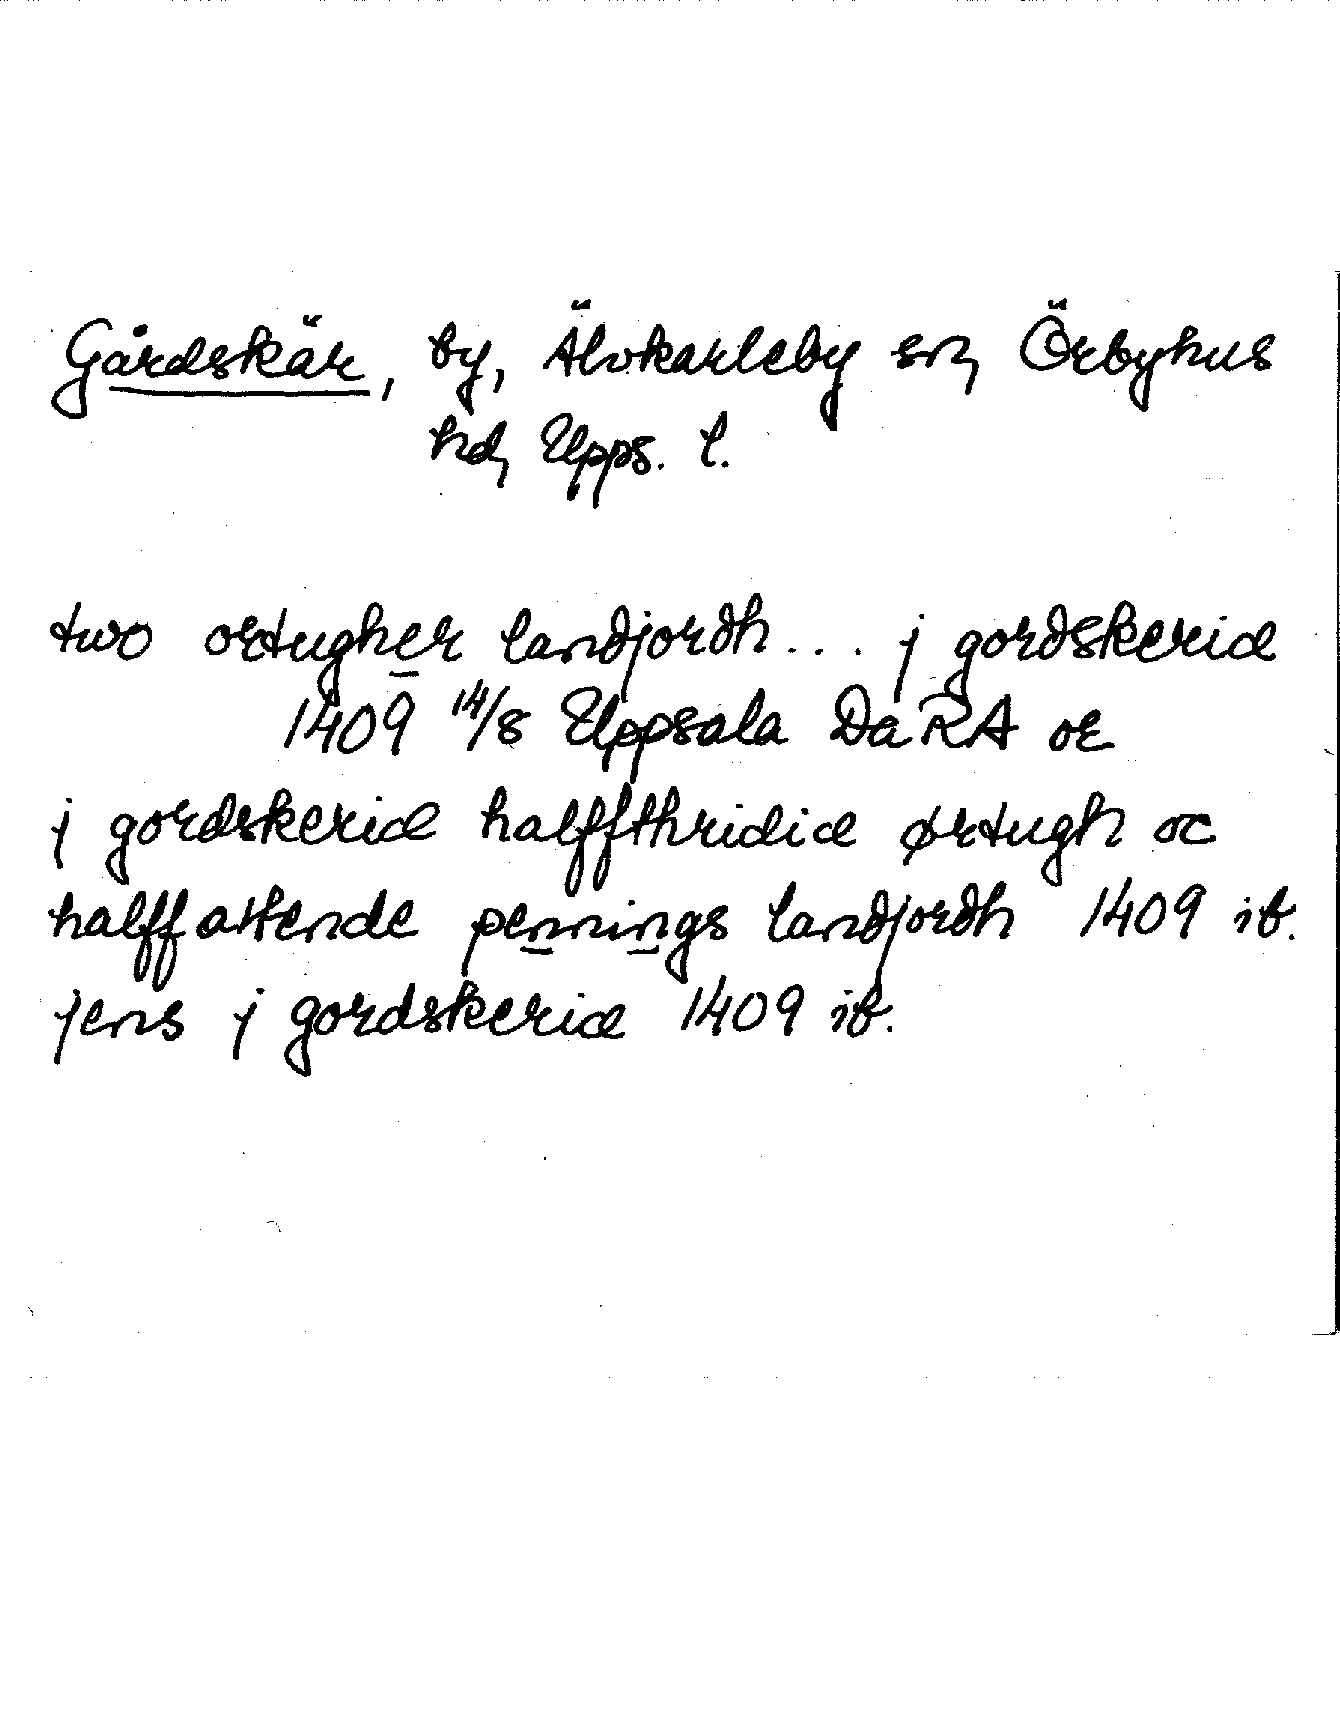 Gårdskär, by, Älvkarleby sn, Örbyhus
hd, Upps. l.
two ortugher landjordh... j gordskeriæ
1409 14/8 Uppsala DaRA or
j gordskeriæ halffthridiæ ørtugh oc
halffattende pennings landjordh 1409 ib.
jens j gordskeriæ 1409 ib.